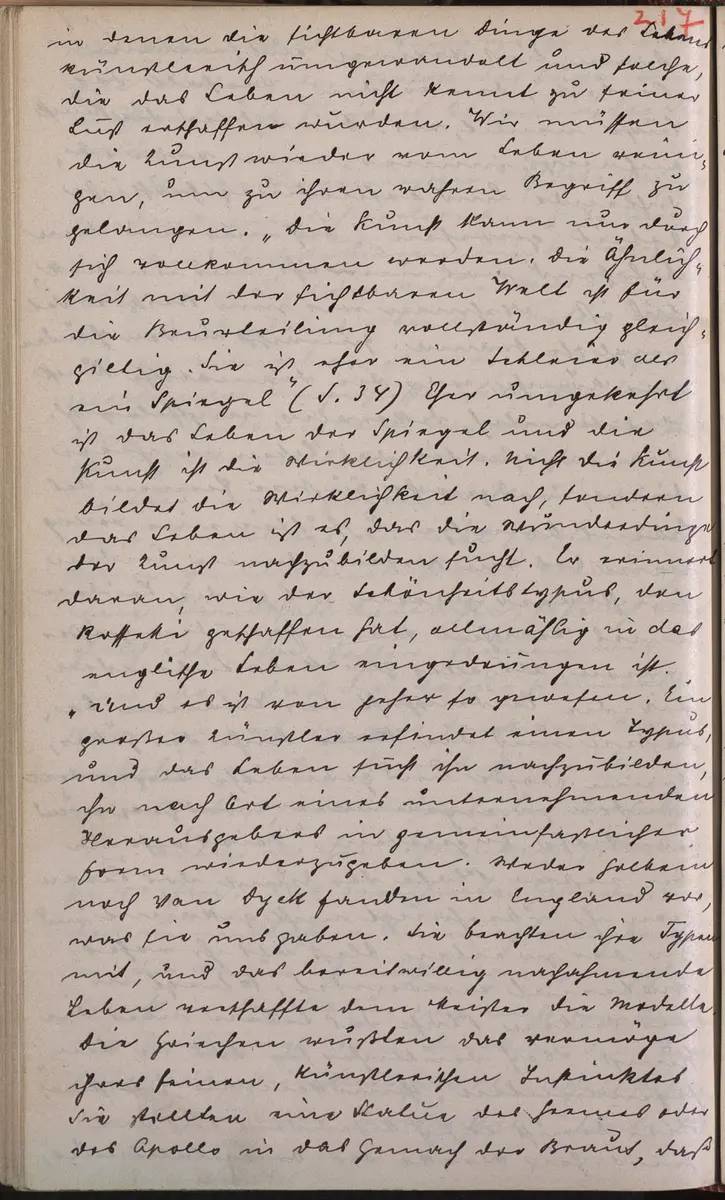 217
in denen die sichtbaren Dinge des Lebens
künstlerisch umgewandelt und solche,
die das Leben nicht kennt zu seiner
Lust erschaffen wurden. Wir müssen
die Kunst wieder vom Leben reini-
gen, um zu ihren wahren Begriff zu
gelangen. „Die Kunst kann nur durch
sich vollkommen werden. Die Ähnlich-
keit mit der sichtbaren Welt ist für
die Beurteilung vollständig gleich-
giltig. Sie ist eher ein Schleier als
ein Spiegel“ (S. 34) Eher umgekehrt
ist das Leben der Spiegel und die
Kunst ist die Wirklichkeit. Nicht die Kunst
bildet die Wirklichkeit nach, sondern
das Leben ist es, das die Wunderdinge
der Kunst nachzubilden sucht. Er erinnert
daran, wie der Schönheitstypus, den
Rossetti geschaffen hat, allmählig in das
englische Leben eingedrungen ist.
„Und es ist von jeher so gewesen. Ein
großer Künstler erfindet einen Typus,
und das Leben sucht ihn nachzubilden,
ihn nach Art eines unternehmenden
Herausgebers in gemeinfasslicher
Form wiederzugeben. Weder Holbein
noch Van Dyck fanden in England vor,
was sie uns gaben. Sie brachten ihre Typen
mit, und das bereitwillig nachahmende
Leben verschaffte dem Meister die Modelle.
Die Griechen wußten das vermöge
ihres feinen, künstlerischen Instinktes
Sie stellten eine Statue des Hermes oder
des Apollo in das Gemach der Braut, daß